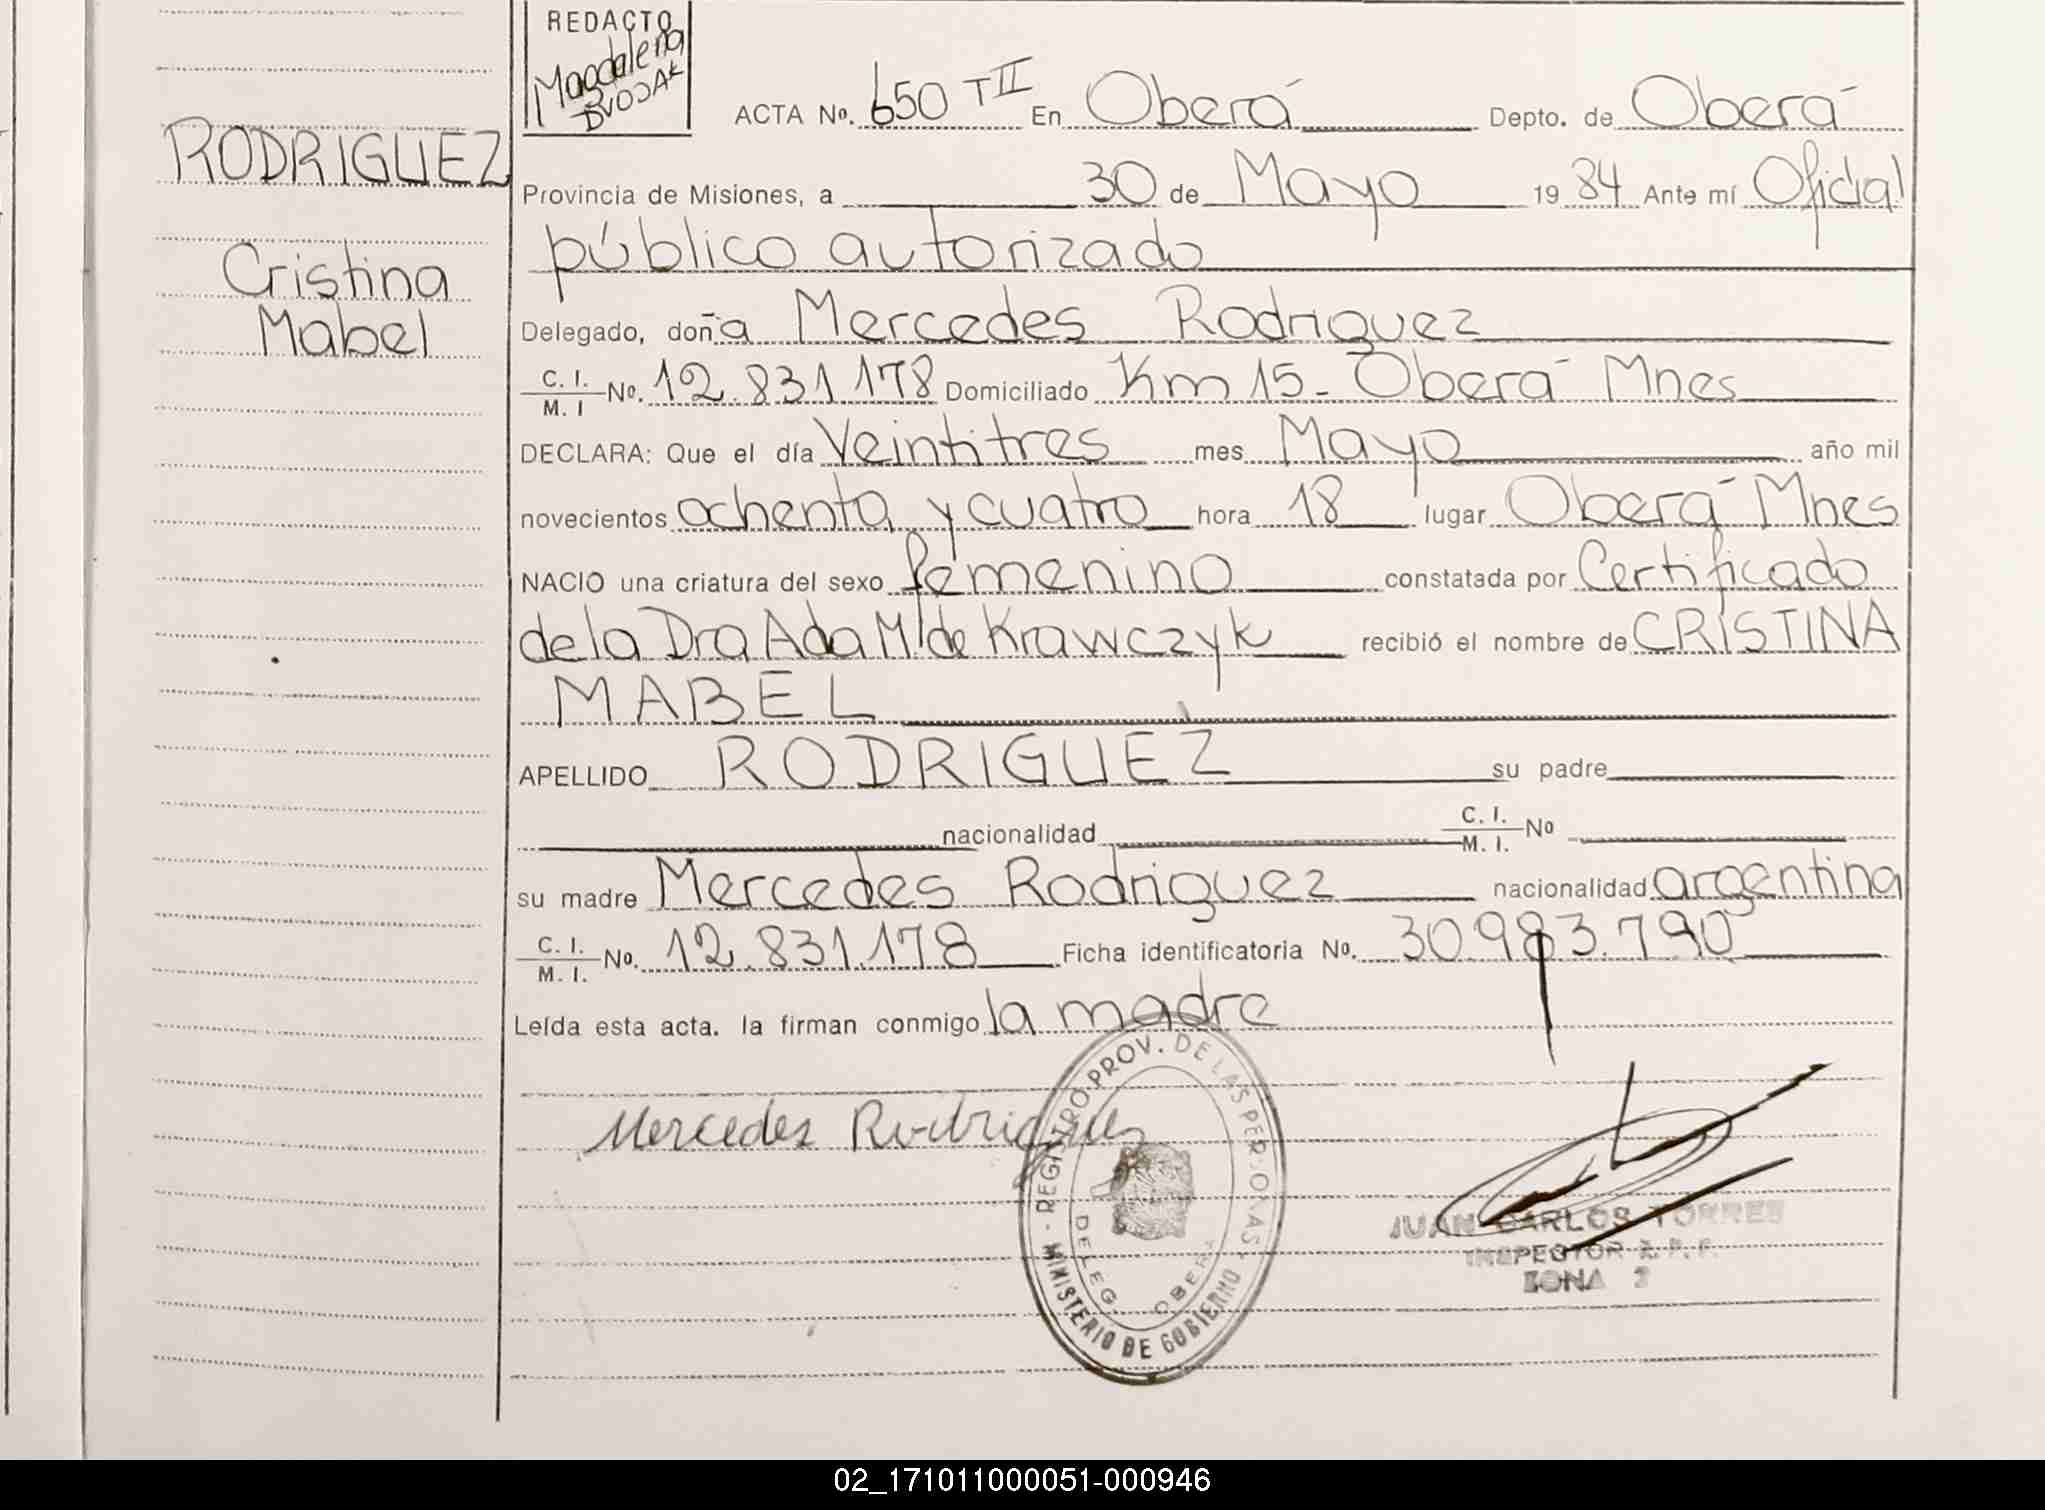 REDACTO
Magdalena
ACTA Nº. 650 T II En Oberá Depto. de Oberá
RODRIGUEZ
Provincia de Misiones, a 30 de Mayo 19 84 Ante mí Oficial
público autorizado
Cristina
Mabel
Delegado, doña Mercedes Rodriguez
C. I. / M. I Nº. 12.831.178 Domiciliado Km 15- Oberá Mnes
DECLARA: Que el día Veintitres mes Mayo año mil
novecientos ochenta y cuatro hora 18 lugar Oberá Mnes
NACIO una criatura del sexo femenino constatada por Certificado
de la Dra Ada M. de Krawczyk recibió el nombre de CRISTINA
MABEL
APELLIDO RODRIGUEZ su padre
nacionalidad C. I. / M. I. Nº
su madre Mercedes Rodriguez nacionalidad argentina
C. I. / M. I. Nº. 12.831.178 Ficha identificatoria Nº. 30.983.790
Leída esta acta. la firman conmigo la madre
Mercedes Rodriguez
REGISTRO PROV. DE LAS PERSONAS - MINISTERIO DE GOBIERNO
DELEG. OBERA
JUAN CARLOS TORRES
INSPECTOR R. P. P.
ZONA 2
02_171011000051-000946